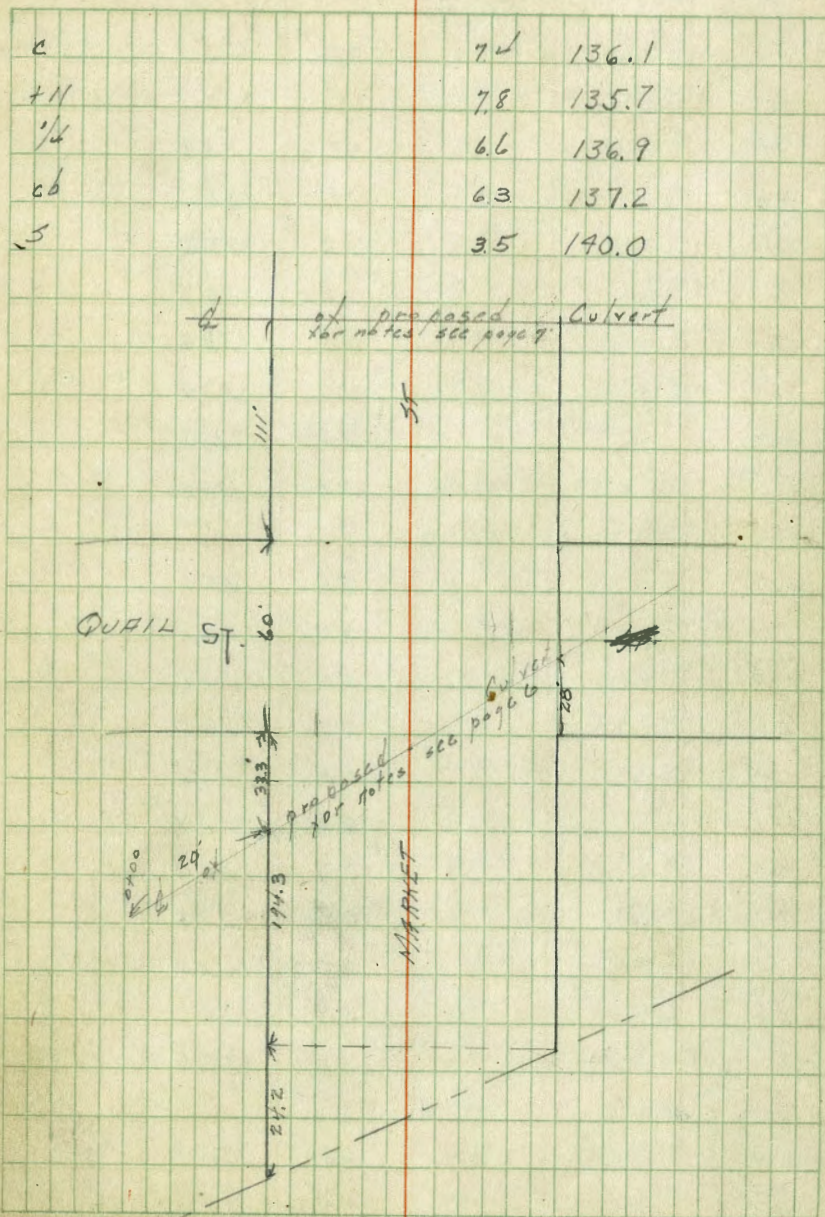 c 7.4 136.1
+11 7.8 135.7
1/4 6.6 136.9
cb 6.3 137.2
S 3.5 140.0
℄ of proposed Culvert
for notes see page 7
111'
ST
QUAIL ST.
60'
28'
33.3'
proposed Culvert
for notes see page 6
0+00
℄
20'
of
194.3
MARKET
24.2